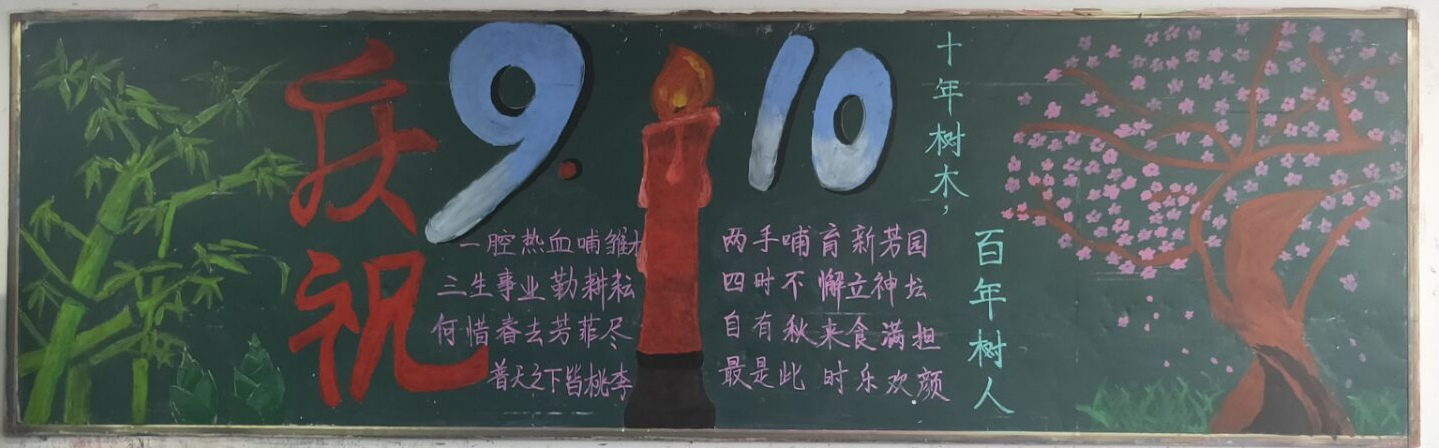 庆祝
9.10
一腔热血哺雏
两手哺育新芳园
三生事业勤耕耘
四时不懈立神坛
何惜春去芳菲尽
自有秋来食满担
普天之下皆桃李
最是此时乐欢颜
十年树木，
百年树人